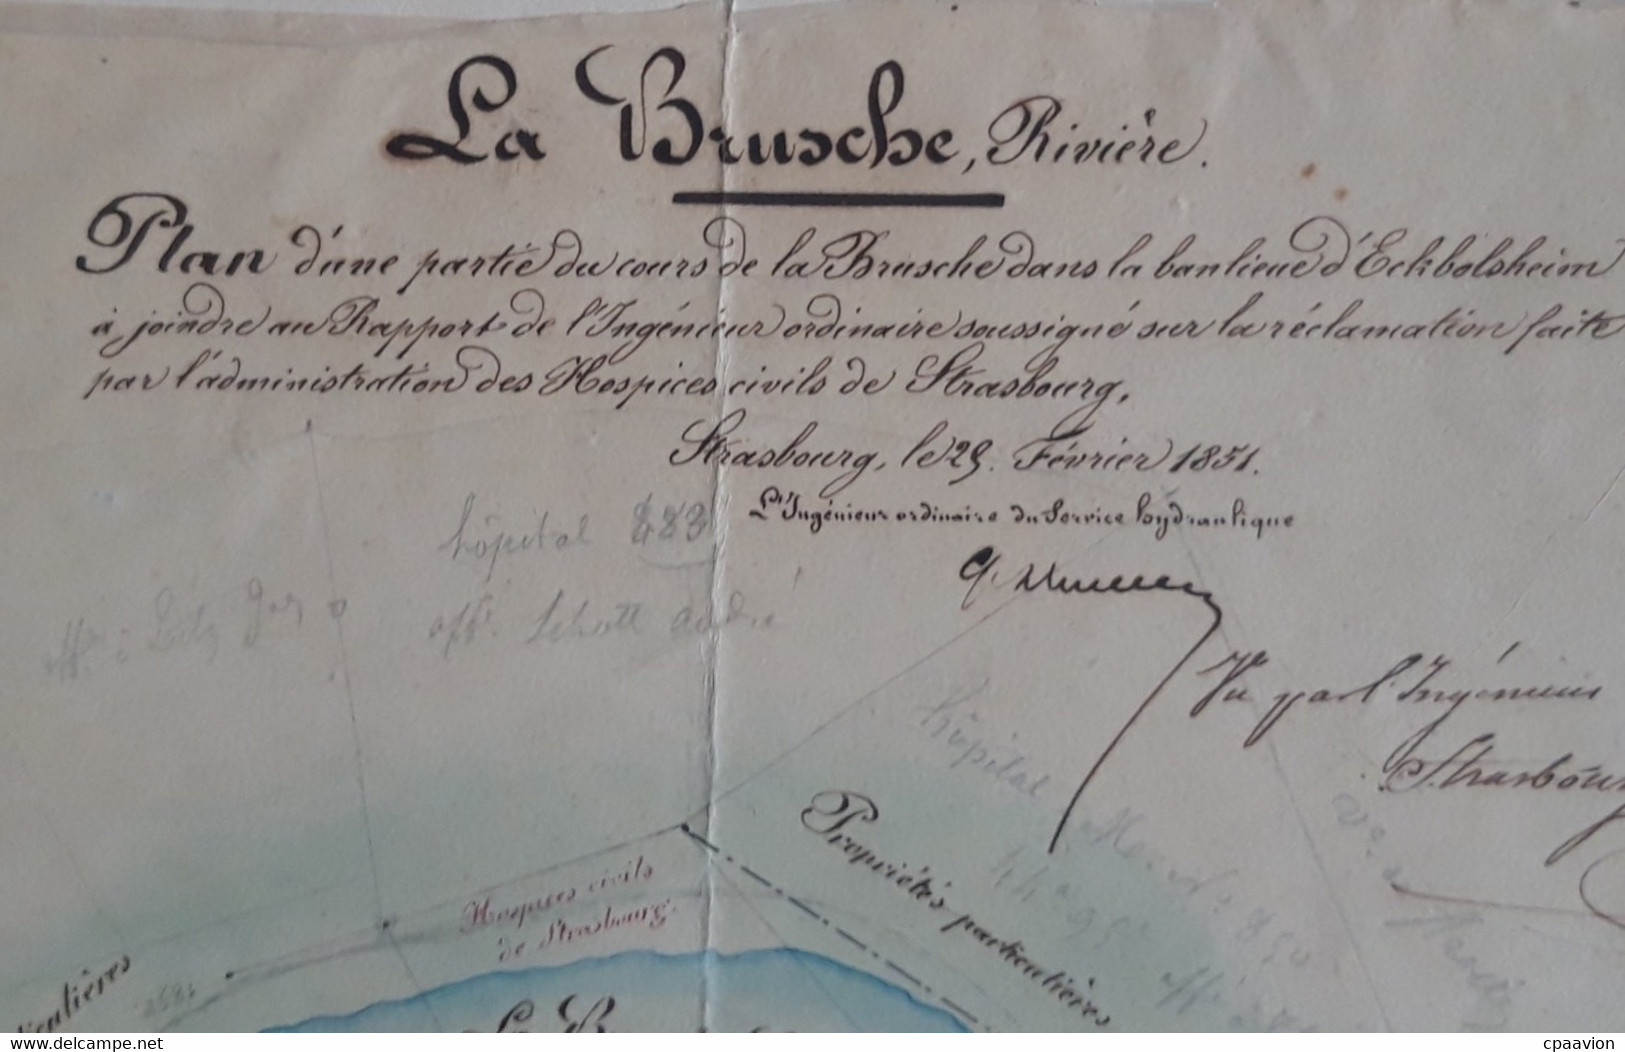 La Brusche, Rivière.
Plan d'une partie du cours de la Brusche dans la banlieue d'Eckbolsheim
à joindre au Rapport de l'Ingénieur ordinaire soussigné sur la réclamation faite
par l'administration des Hospices civils de Strasbourg,
Strasbourg, le 25. Février 1851.
L'Ingénieur ordinaire du Service hydraulique
hôpital 283
aff. Schott andré
Vu par l'Ingénieur
Strasbour
hôpital
Propriétés particulières
Hospices civils
de Strasbourg.
iculières
La B
www.delcampe.net
cpaavion